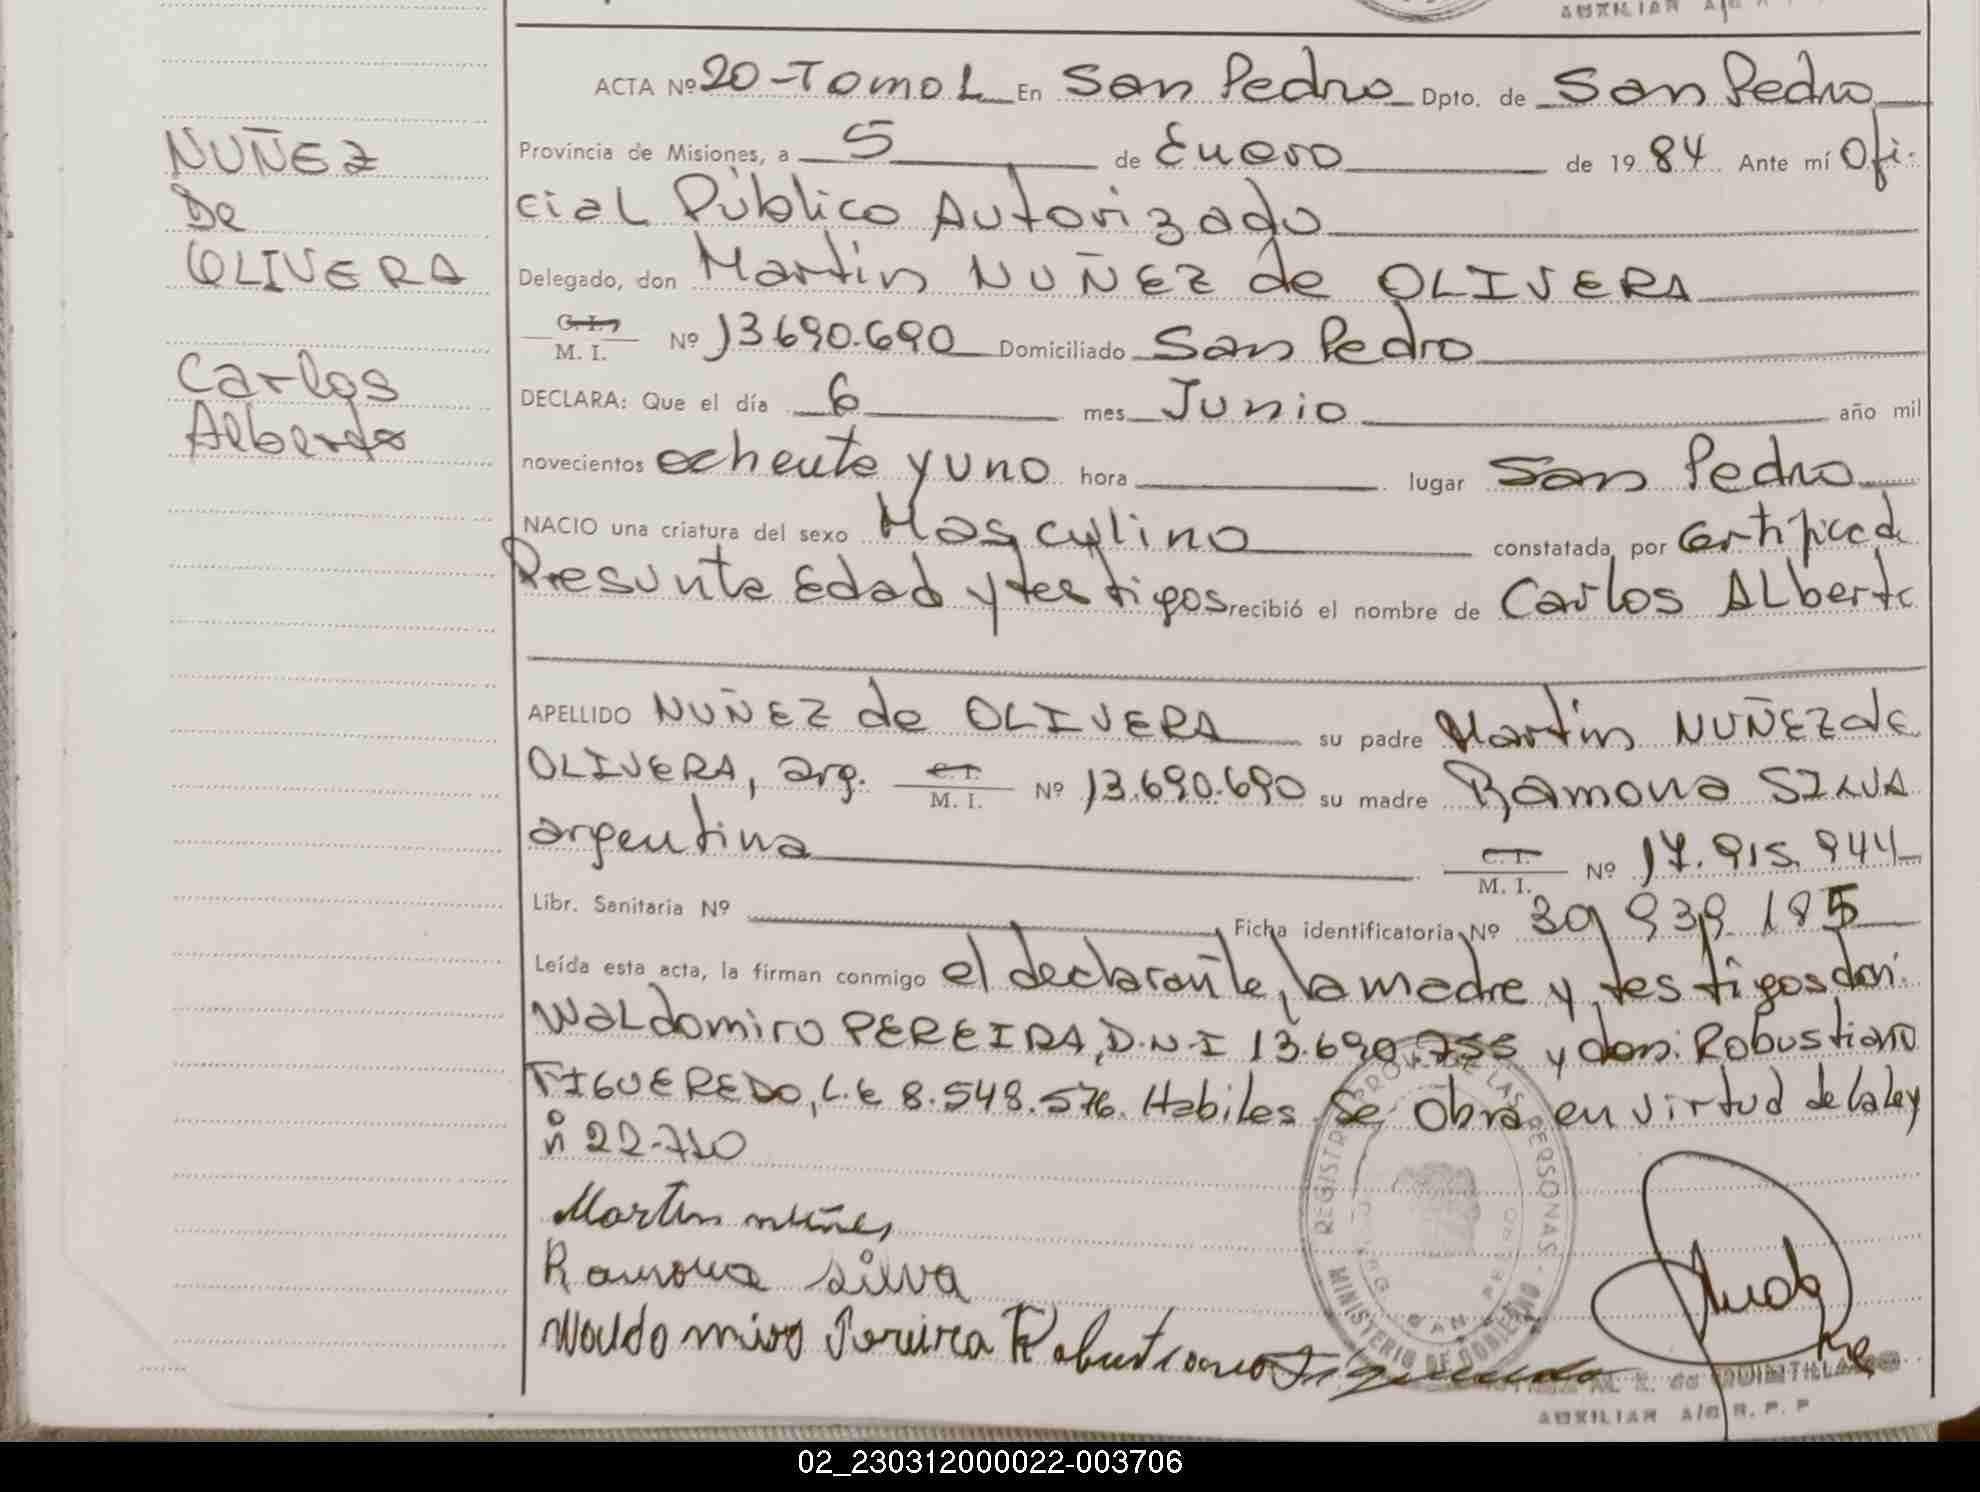 AUXILIAR A/c R.
ACTA Nº 20 - Tomo I En San Pedro Dpto. de San Pedro
Provincia de Misiones, a 5 de Enero de 19 84 Ante mí Ofi-
cial Público Autorizado
Delegado, don Martin NUÑEZ de OLIVERA
C. I. / M. I. Nº 13.690.690 Domiciliado San Pedro
DECLARA: Que el día 6 mes Junio año mil
novecientos ochenta y uno hora lugar San Pedro
NACIO una criatura del sexo Masculino constatada por Certificad
Presunta Edad y testigos recibió el nombre de Carlos Alberto
APELLIDO NUÑEZ de OLIVERA su padre Martin NUÑEZ de
OLIVERA, arg. C. I. / M. I. Nº 13.690.690 su madre Ramona SILVA
argentina C. I. / M. I. Nº 17.915.944
Libr. Sanitaria Nº Ficha identificatoria Nº 30 939 185
Leída esta acta, la firman conmigo el declarante, la madre y testigos don:
Waldomiro PEREIRA, D.N.I 13.690.755 y don: Robustiano
FIGUEREDO, L.E 8.548.576. Habiles. Se Obra en virtud de la ley
nº 22.710
Martin nuñes
Ramona Silva
Waldomiro Pereira Robustiano Figueredo
REGISTRO PROV. DE LAS PERSONAS
MINISTERIO DE GOBIERNO
SAN PEDRO
de QUINTILLAN
AUXILIAR A/C R. P. P
NUÑEZ
De
OLIVERA
Carlos
Alberto
02_230312000022-003706